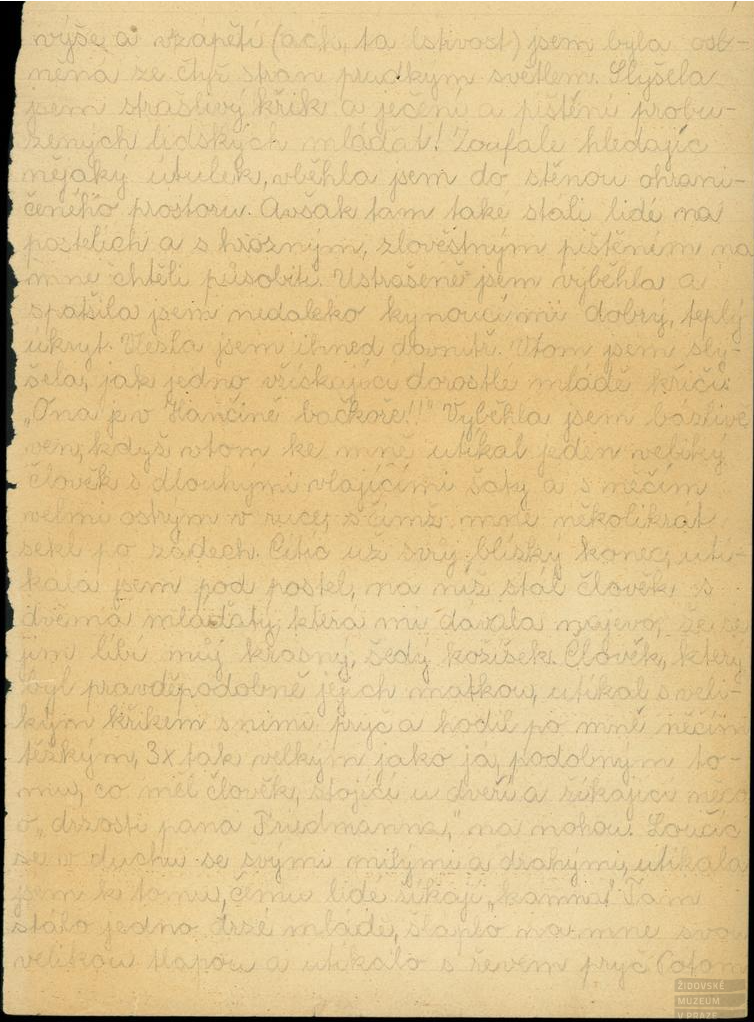 výše a vzápětí (ach, ta lstivost) jsem byla osl-
něna ze čtyř stran prudkým světlem. Slyšela
jsem strašlivý křik a ječení a pištění probu-
zených lidských mláďat! Zoufale hledajíc
nějaký útulek, vběhla jsem do stěnou ohrani-
čeného prostoru. Avšak tam také stáli lidé na
postelích a s hrozným, zlověstným pištěním na
mne chtěli působiti. Ustrašeně jsem vyběhla a
spatřila jsem nedaleko kynoucí mi dobrý, teplý
úkryt. Vlezla jsem ihned dovnitř. Vtom jsem sly-
šela, jak jedno vřískající dorostlé mládě křičí:
„Ona je v Hančině bačkoře!!" Vyběhla jsem bázlivě
ven, když vtom ke mně utíkal jeden veliký
člověk s dlouhými vlajícími šaty a s něčím
velmi ostrým v ruce, s čímž mne několikrát
sekl po zádech. Cítíc už svůj blízký konec, utí-
kala jsem pod postel, na níž stál člověk s
dvěmä mláďaty, která mi dávala najevo, že se
jim líbí můj krásný, šedý kožíšek. Člověk, který
byl pravděpodobně jejich matkou, utíkal s veli-
kým křikem s nimi pryč a hodil po mně něčím
těžkým, 3x tak velkým jako já, podobným to-
mu, co měl člověk, stojící u dveří a říkající něco
o „drzosti pana Friedmanna," na nohou. Loučíc
se v duchu se svými milými a drahými, utíkala
jsem k tomu, čemu lidé říkají „kamna". Tam
stálo jedno drzé mládě, šláplo na mne svou
velikou tlapou a utíkalo s řevem pryč. Potom
ŽIDOVSKÉ
MUZEUM
V PRAZE